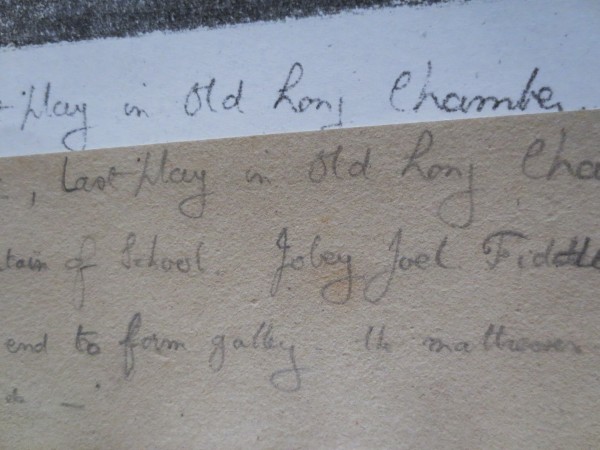 Play in Old Long Chamber.
, Last Play in Old Long Cha
tain of School. Jobey Joel Fiddle
end to form gallery th mattresses